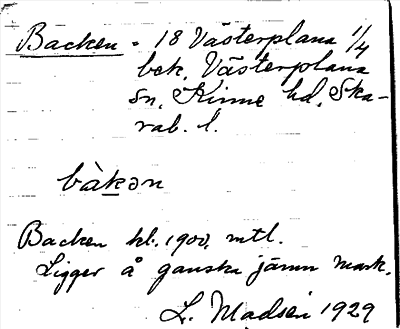 Backen - 18 Västerplana 1/4
bek. Västerplana
sn, Kinne hd, Ska-
rab. l.
bàkən
Backen hl. 1900, mtl.
Ligger å ganska jämn mark.
L. Madsén 1929